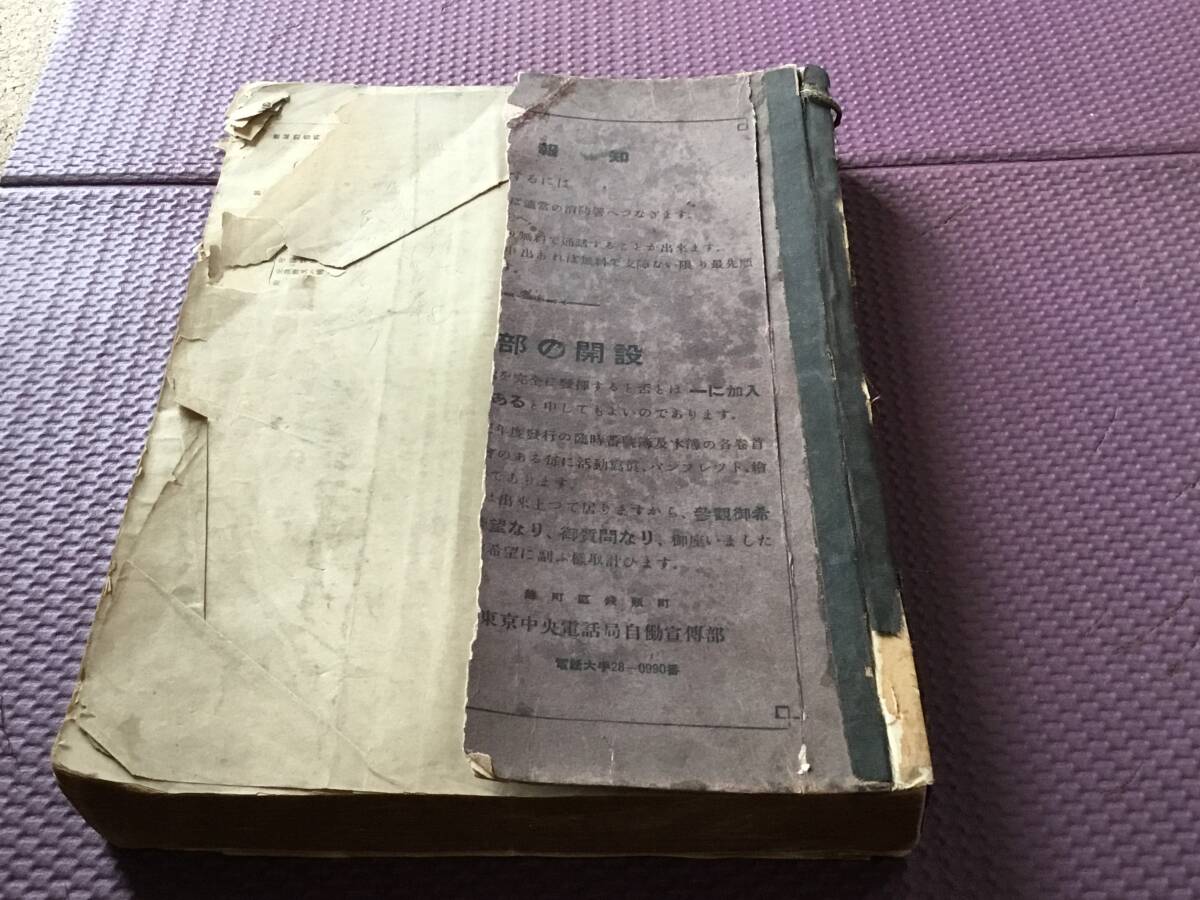 報知
するには
に適當の消防署へつなぎます。
無料で通話することが出来ます。
申出あれば無料で支障ない限り最先順
す。
部の開設
を完全に發揮すると否とは 一に加入
あると申してもよいのであります。
年度發行の臨時番號簿及本簿の各卷首
のある毎に活動寫眞、パンフレット、繪
であります。
出來上つて居りますから、參觀御希
望なり、御質問なり、御座いました
希望に副ふ樣取計ひます。
麴町區錢瓶町
東京中央電話局自働宣傳部
電話大手28—0990番